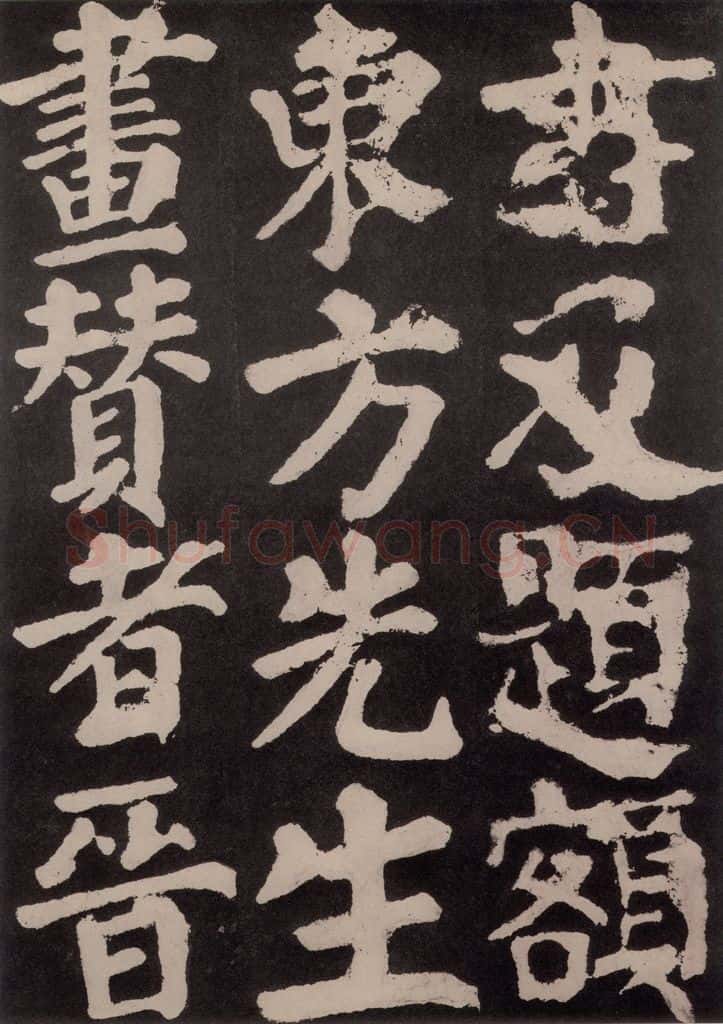 書及題額
東方先生
畫賛者晉
Shufawang.CN